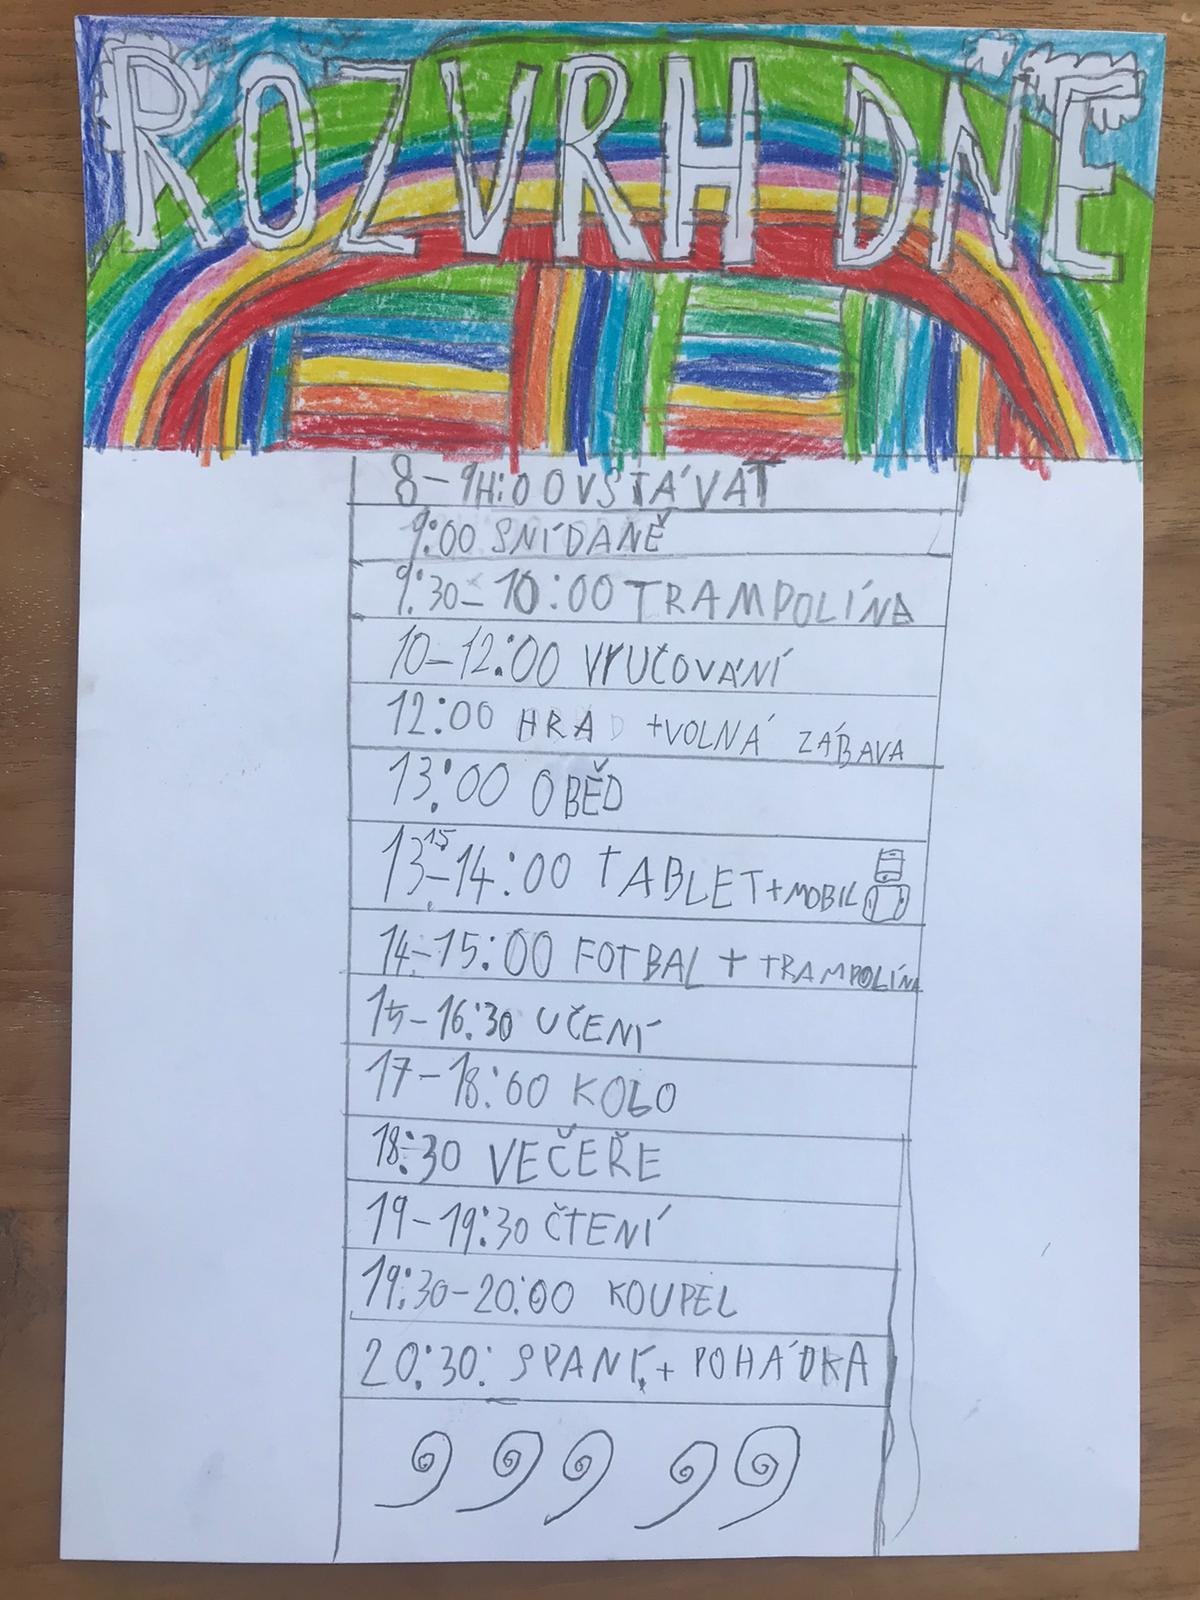 ROZVRH DNE
8-9H:00 VSTÁVAT
9:00 SNÍDANĚ
9:30-10:00 TRAMPOLÍNA
10-12:00 VYUČOVÁNÍ
12:00 HRA +VOLNÁ ZÁBAVA
13:00 OBĚD
13 15-14:00 TABLET+MOBIL
14-15:00 FOTBAL + TRAMPOLÍNA
15-16:30 UČENÍ
17-18:00 KOLO
18:30 VEČEŘE
19-19:30 ČTENÍ
19:30-20:00 KOUPEL
20:30: SPANÍ + POHÁDKA